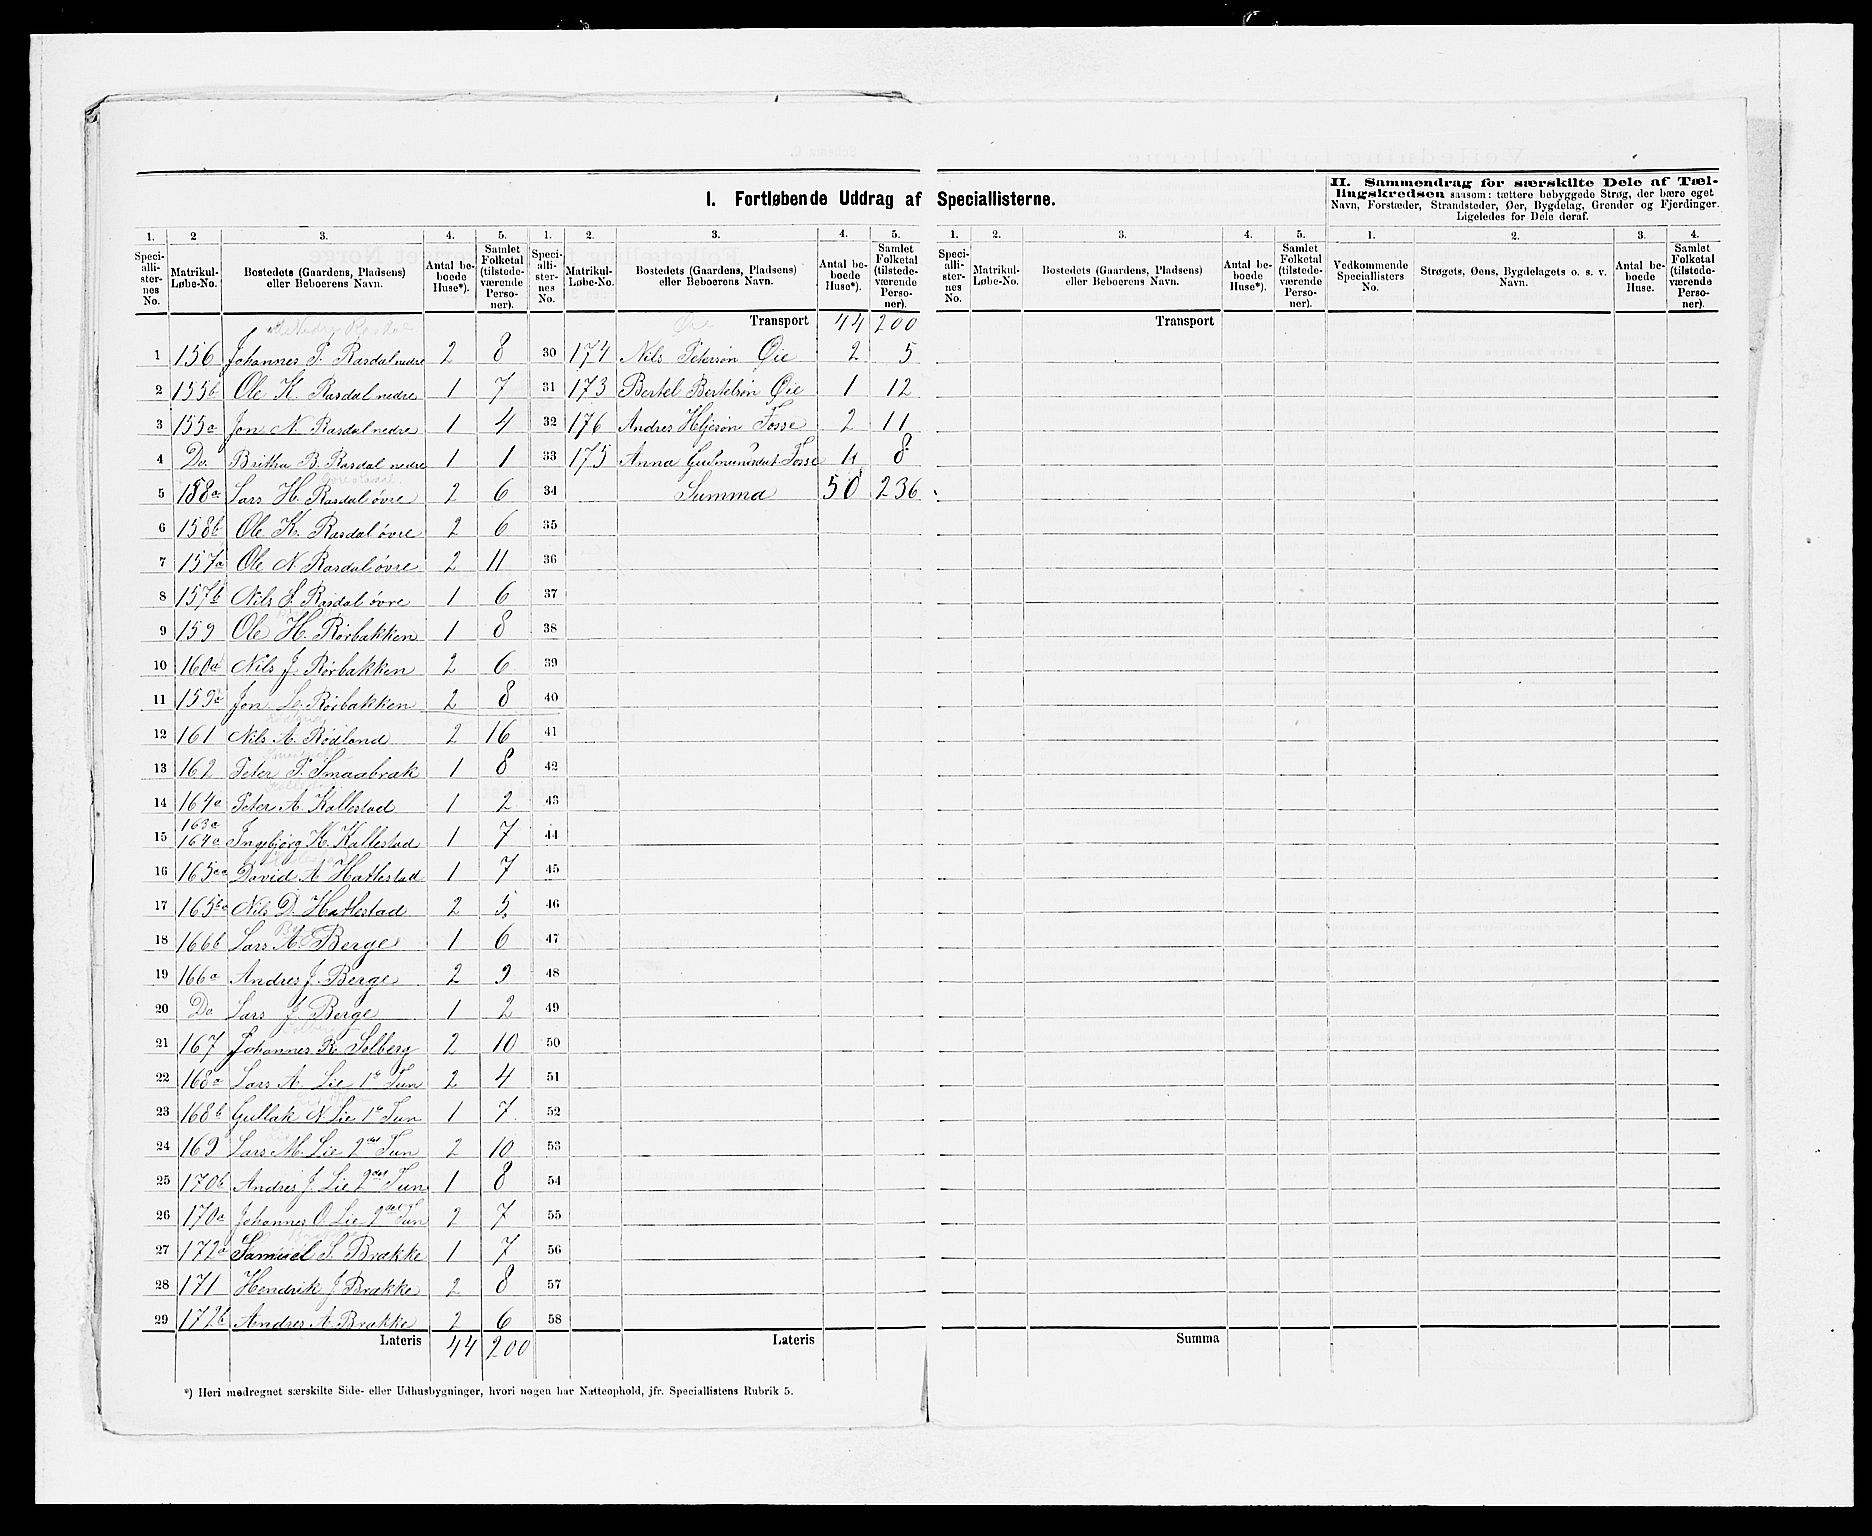 I. Fortløbende Uddrag af Speciallisterne.
II. Sammendrag for særskilte Dele af Tællingskredsen saasom: tættere bebyggede Strøg, der bære eget
Navn, Forstæder, Strandsteder, Øer, Bygdelag, Grender og Fjerdinger.
Ligeledes for Dele deraf.
1. 2 3. 4. 5. 1. 2. 3. 4. 5. 1. 2. 3. 4. 5. 1. 2. 3. 4.
Speciallisternes No. Matrikul-Løbe-No. Bostedets (Gaardens, Pladsens) eller Beboerens Navn. Antal beboede Huse*). Samlet Folketal (tilstedeværende Personer).
Speciallisternes No. Matrikul-Løbe-No. Bostedets (Gaardens, Pladsens) eller Beboerens Navn. Antal beboede Huse*). Samlet Folketal (tilstedeværende Personer).
Speciallisternes No. Matrikul-Løbe-No. Bostedets (Gaardens, Pladsens) eller Beboerens Navn. Antal beboede Huse*). Samlet Folketal (tilstedeværende Personer).
Vedkommende Speciallisters No. Strøgets, Øens, Bygdelagets o. s. v. Navn. Antal beboede Huse. Samlet Folketal (tilstedeværende Personer).
Transport 44 200 Transport
1 156 Johannes P. Rasdal nedre 2 8 30 174 Nils Peterson Øie 2 5
2 155b Ole K. Rasdal nedre 1 7 31 173 Bertel Bertelsøn Øie 1 12
3 155a Jon N. Rasdal nedre 1 4 32 176 Andres Fosse 2 11
4 Do. Britha B. Rasdal nedre 1 1 33 175 Anna Gudmundsdat Fosse 8
5 158a Lars H. Rasdal øvre 2 6 34 Summa 50 236
6 158b Ole K. Rasdal øvre 2 6 35
7 157a Ole N. Rasdal øvre 2 11 36
8 157b Nils Rasdal øvre 1 6 37
9 159 Ole H. Rørbakken 1 8 38
10 160a Nils J. Rørbakken 2 6 39
11 159a Jon L. Rørbakken 2 8 40
12 161 Nils A. Rødland 2 16 41
13 162 Peter P. Smaabrak 1 8 42
14 164a Peter A. Kallestad 1 2 43
15 163a 164a Ingebjørg K. Kallestad 1 7 44
16 165aa David A. Hatlestad 1 7 45
17 165ba Nils D. Hatlestad 2 5 46
18 166b Lars A. Berge 1 6 47
19 166a Andres J. Berge 2 9 48
20 Do Lars J. Berge 1 2 49
21 167 Johannes R. Solberg 2 10 50
22 168a Lars A. Lie 1e Tun 2 4 51
23 168b Gullak N. Lie 1e Tun 1 7 52
24 169 Lars M. Lie 2det Tun 2 10 53
25 170b Andres J. Lie 2det Tun 1 8 54
26 170a Johannes O. Lie 2det Tun 2 7 55
27 172a Samuel S. Brække 1 7 56
28 171 Hendrik J. Brække 2 8 57
29 172b Andres A. Brække 2 6 58
Lateris 44 200 Lateris Summa
*) Heri medregnet særskilte Side- eller Udhusbygninger, hvori nogen har Natteophold, jfr. Speciallistens Rubrik 5.